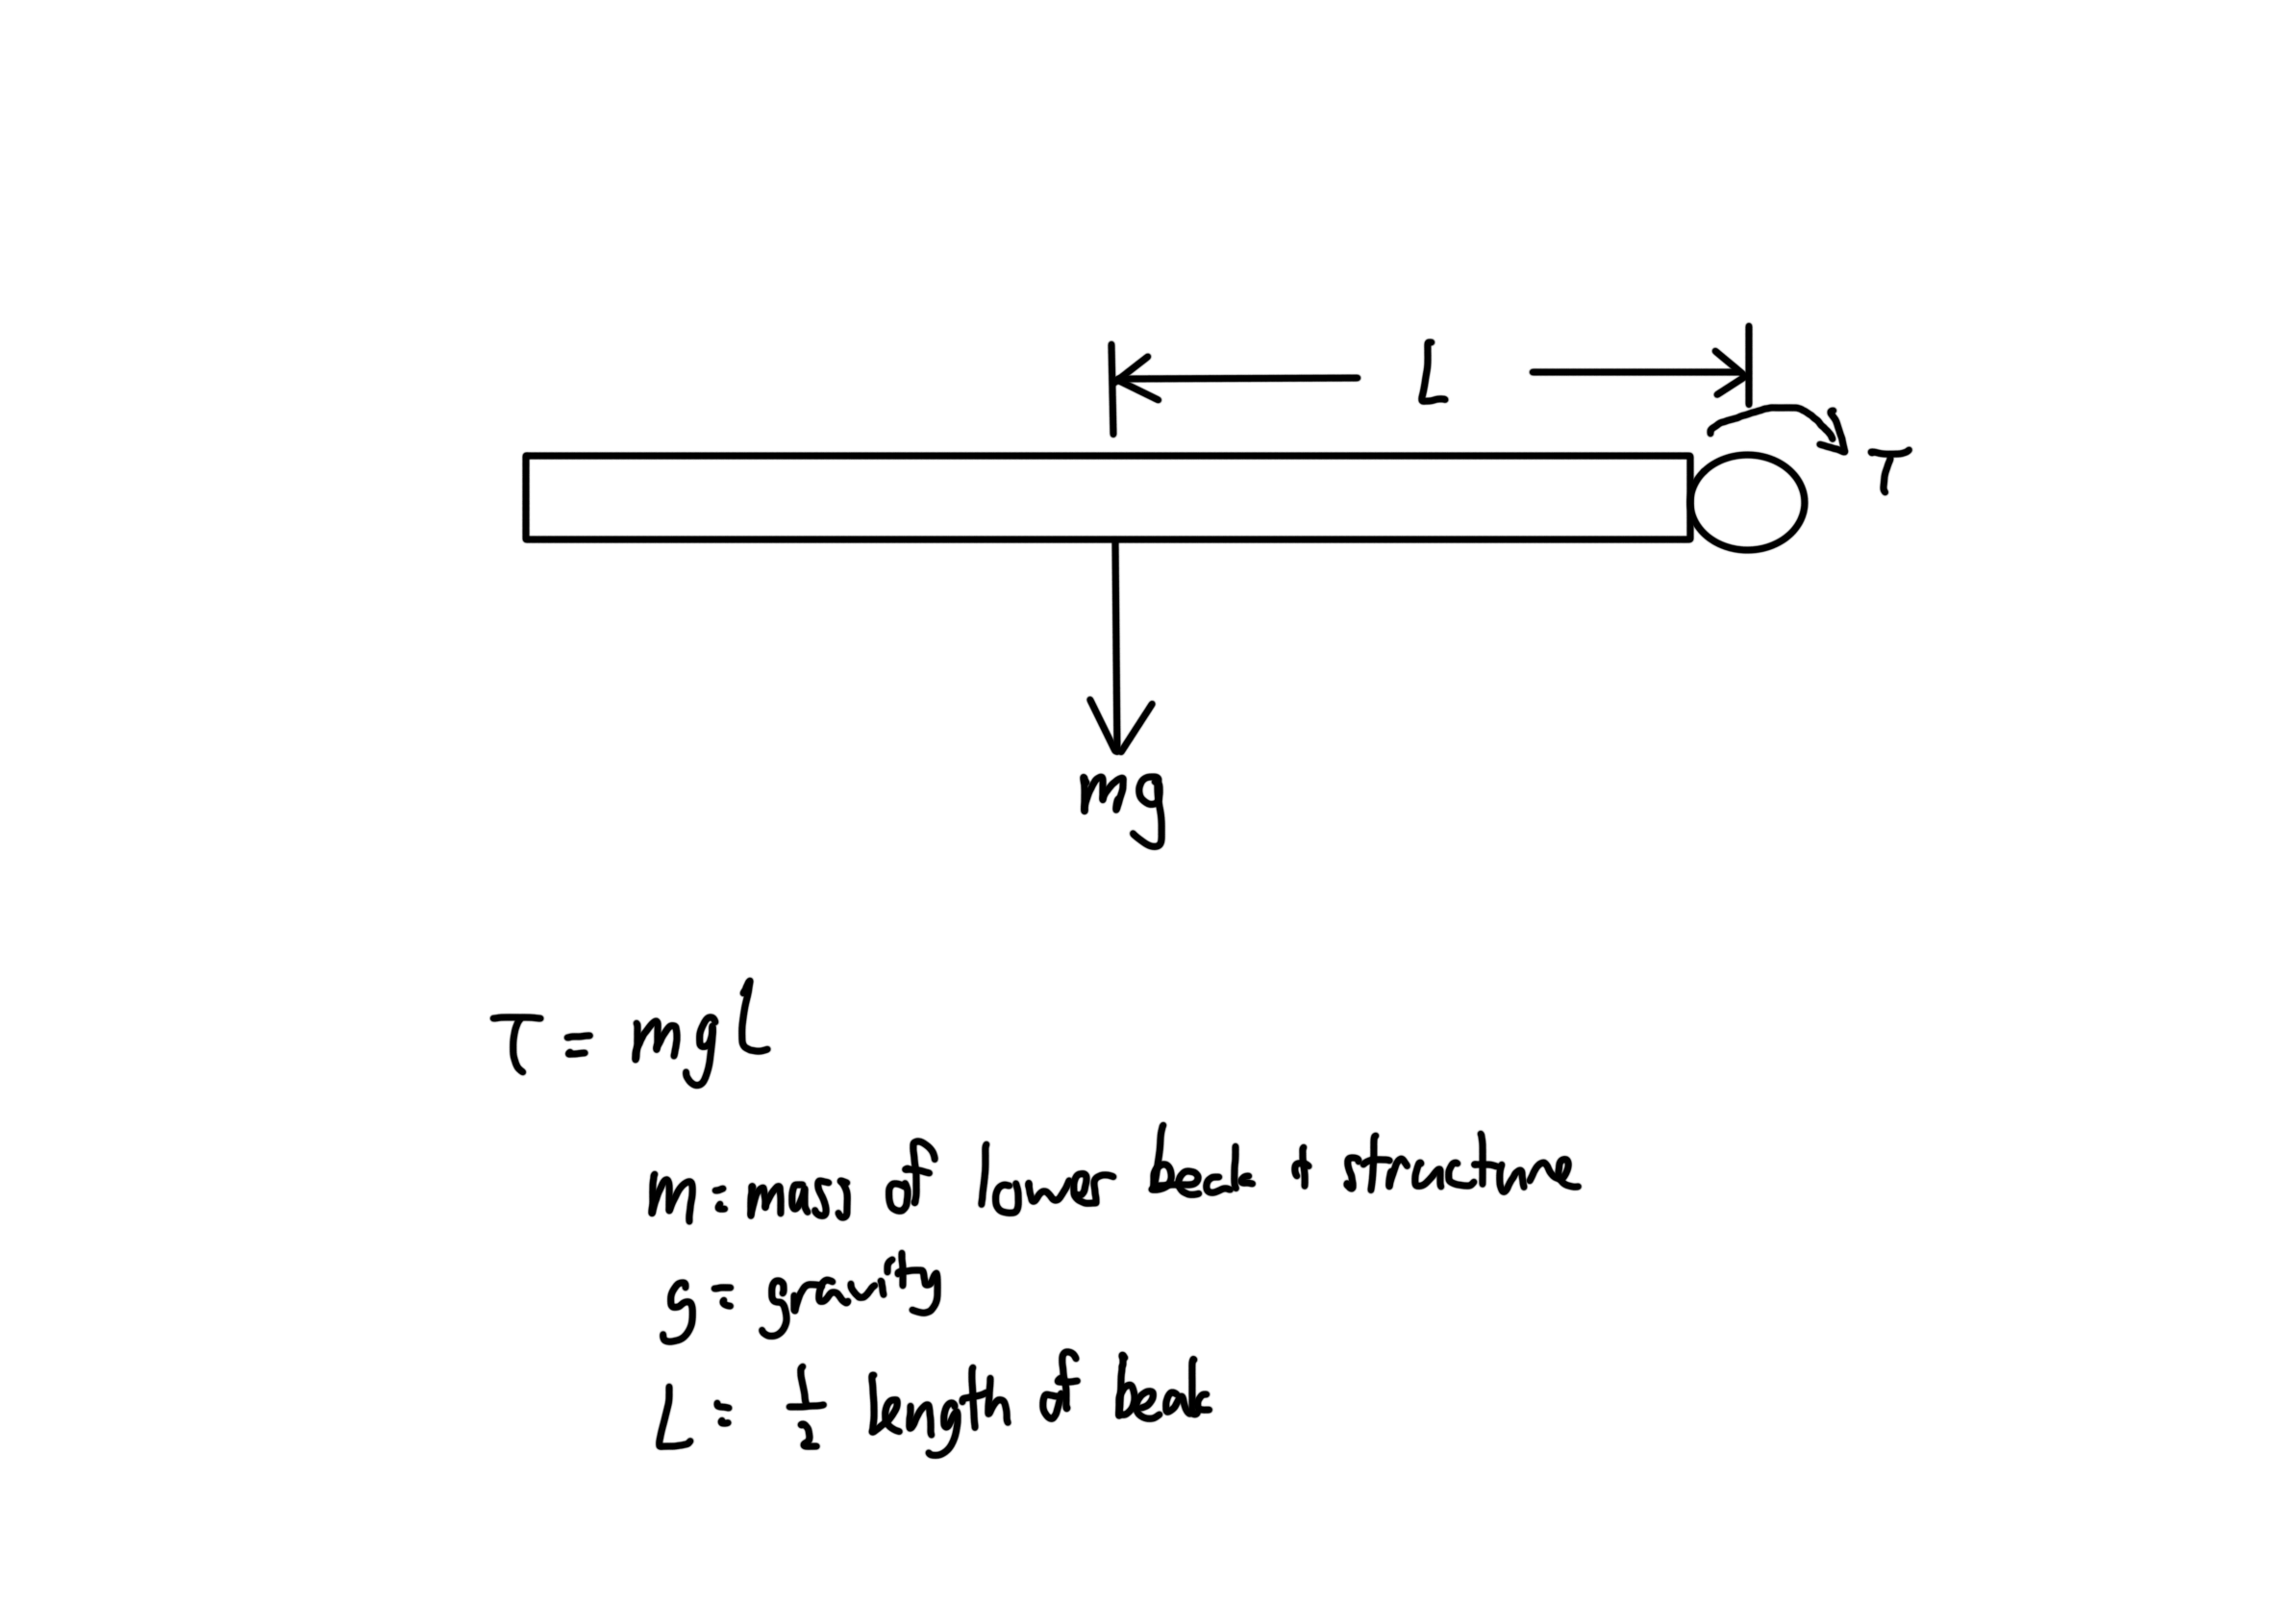 L
τ
mg
τ = mgL
m: mass of lower beak + structure
g = gravity
L: 1/2 length of beak